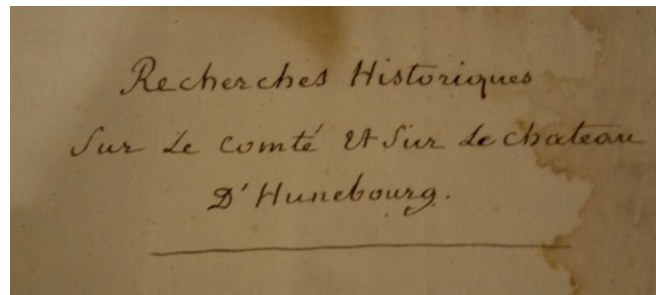 Recherches Historiques
Sur Le Comté Et Sur Le chateau
D'Hunebourg.